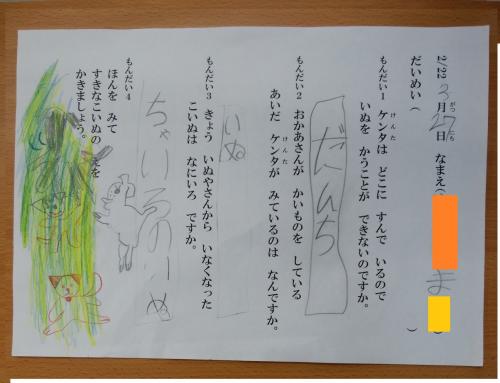 2/22 3月27日 なまえ( ま )
だいめい( )
もんだい1 ケンタは どこに すんで いるので
いぬを かうことが できないのですか。
だんち
もんだい2 おかあさんが かいものを している
あいだ ケンタが みているのは なんですか。
いぬ
もんだい3 きょう いぬやさんから いなくなった
こいぬは なにいろ ですか。
ちゃいろのいぬ
もんだい4
ほんを みて
すきなこいぬの えを
かきましょう。